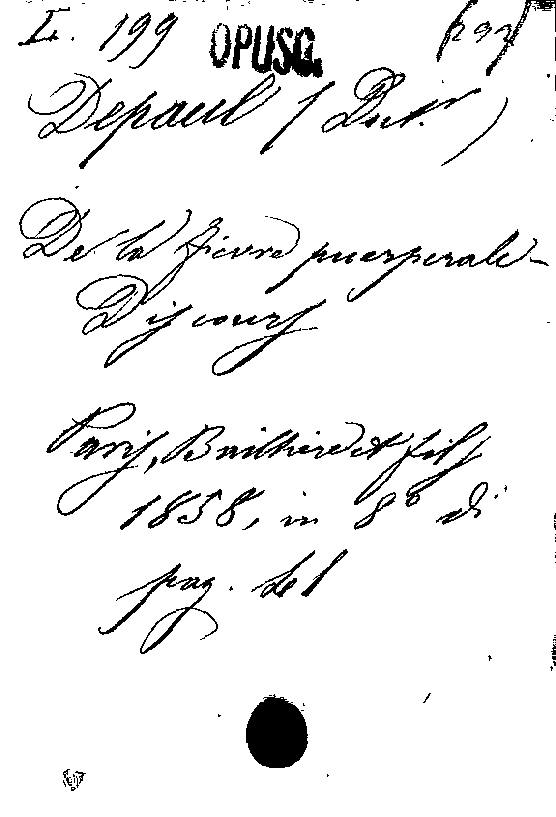 I. 199 OPUSC.
Depaul (Dott.)
De la fievre puerperale-
Discours
Paris, Bailliere et fils
1858, in 8º di
pag.